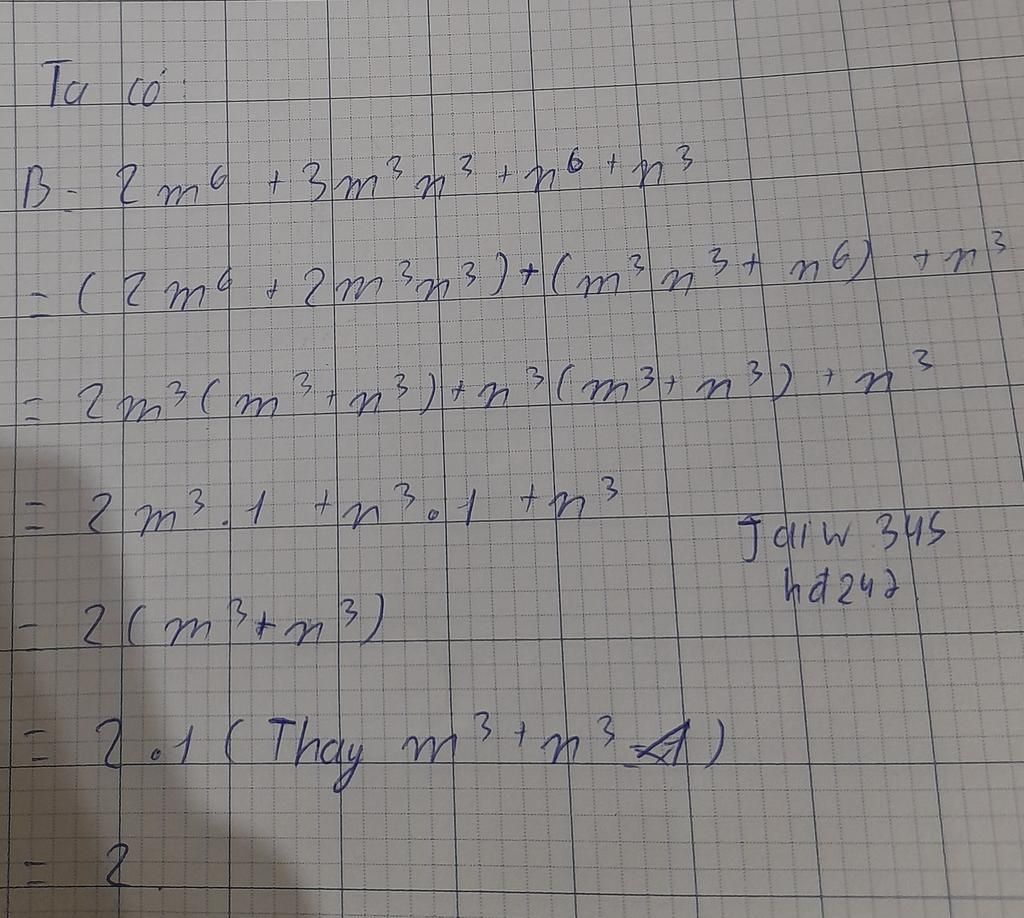 Ta có:
B = 2m⁶ + 3m³n³ + n⁶ + n³
= (2m⁶ + 2m³n³) + (m³n³ + n⁶) + n³
= 2m³(m³ + n³) + n³(m³ + n³) + n³
= 2m³.1 + n³.1 + n³
= 2(m³ + n³)
= 2.1 (Thay m³ + n³ = 1)
= 2